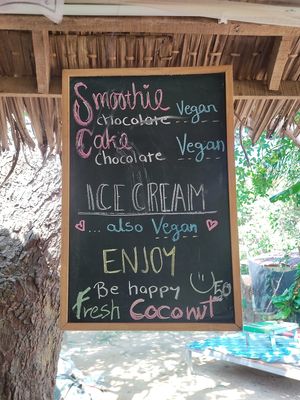 Smoothie Vegan
chocolate
Cake Vegan
chocolate
ICE CREAM
... also Vegan
ENJOY
Be happy
Fresh Coconut 50